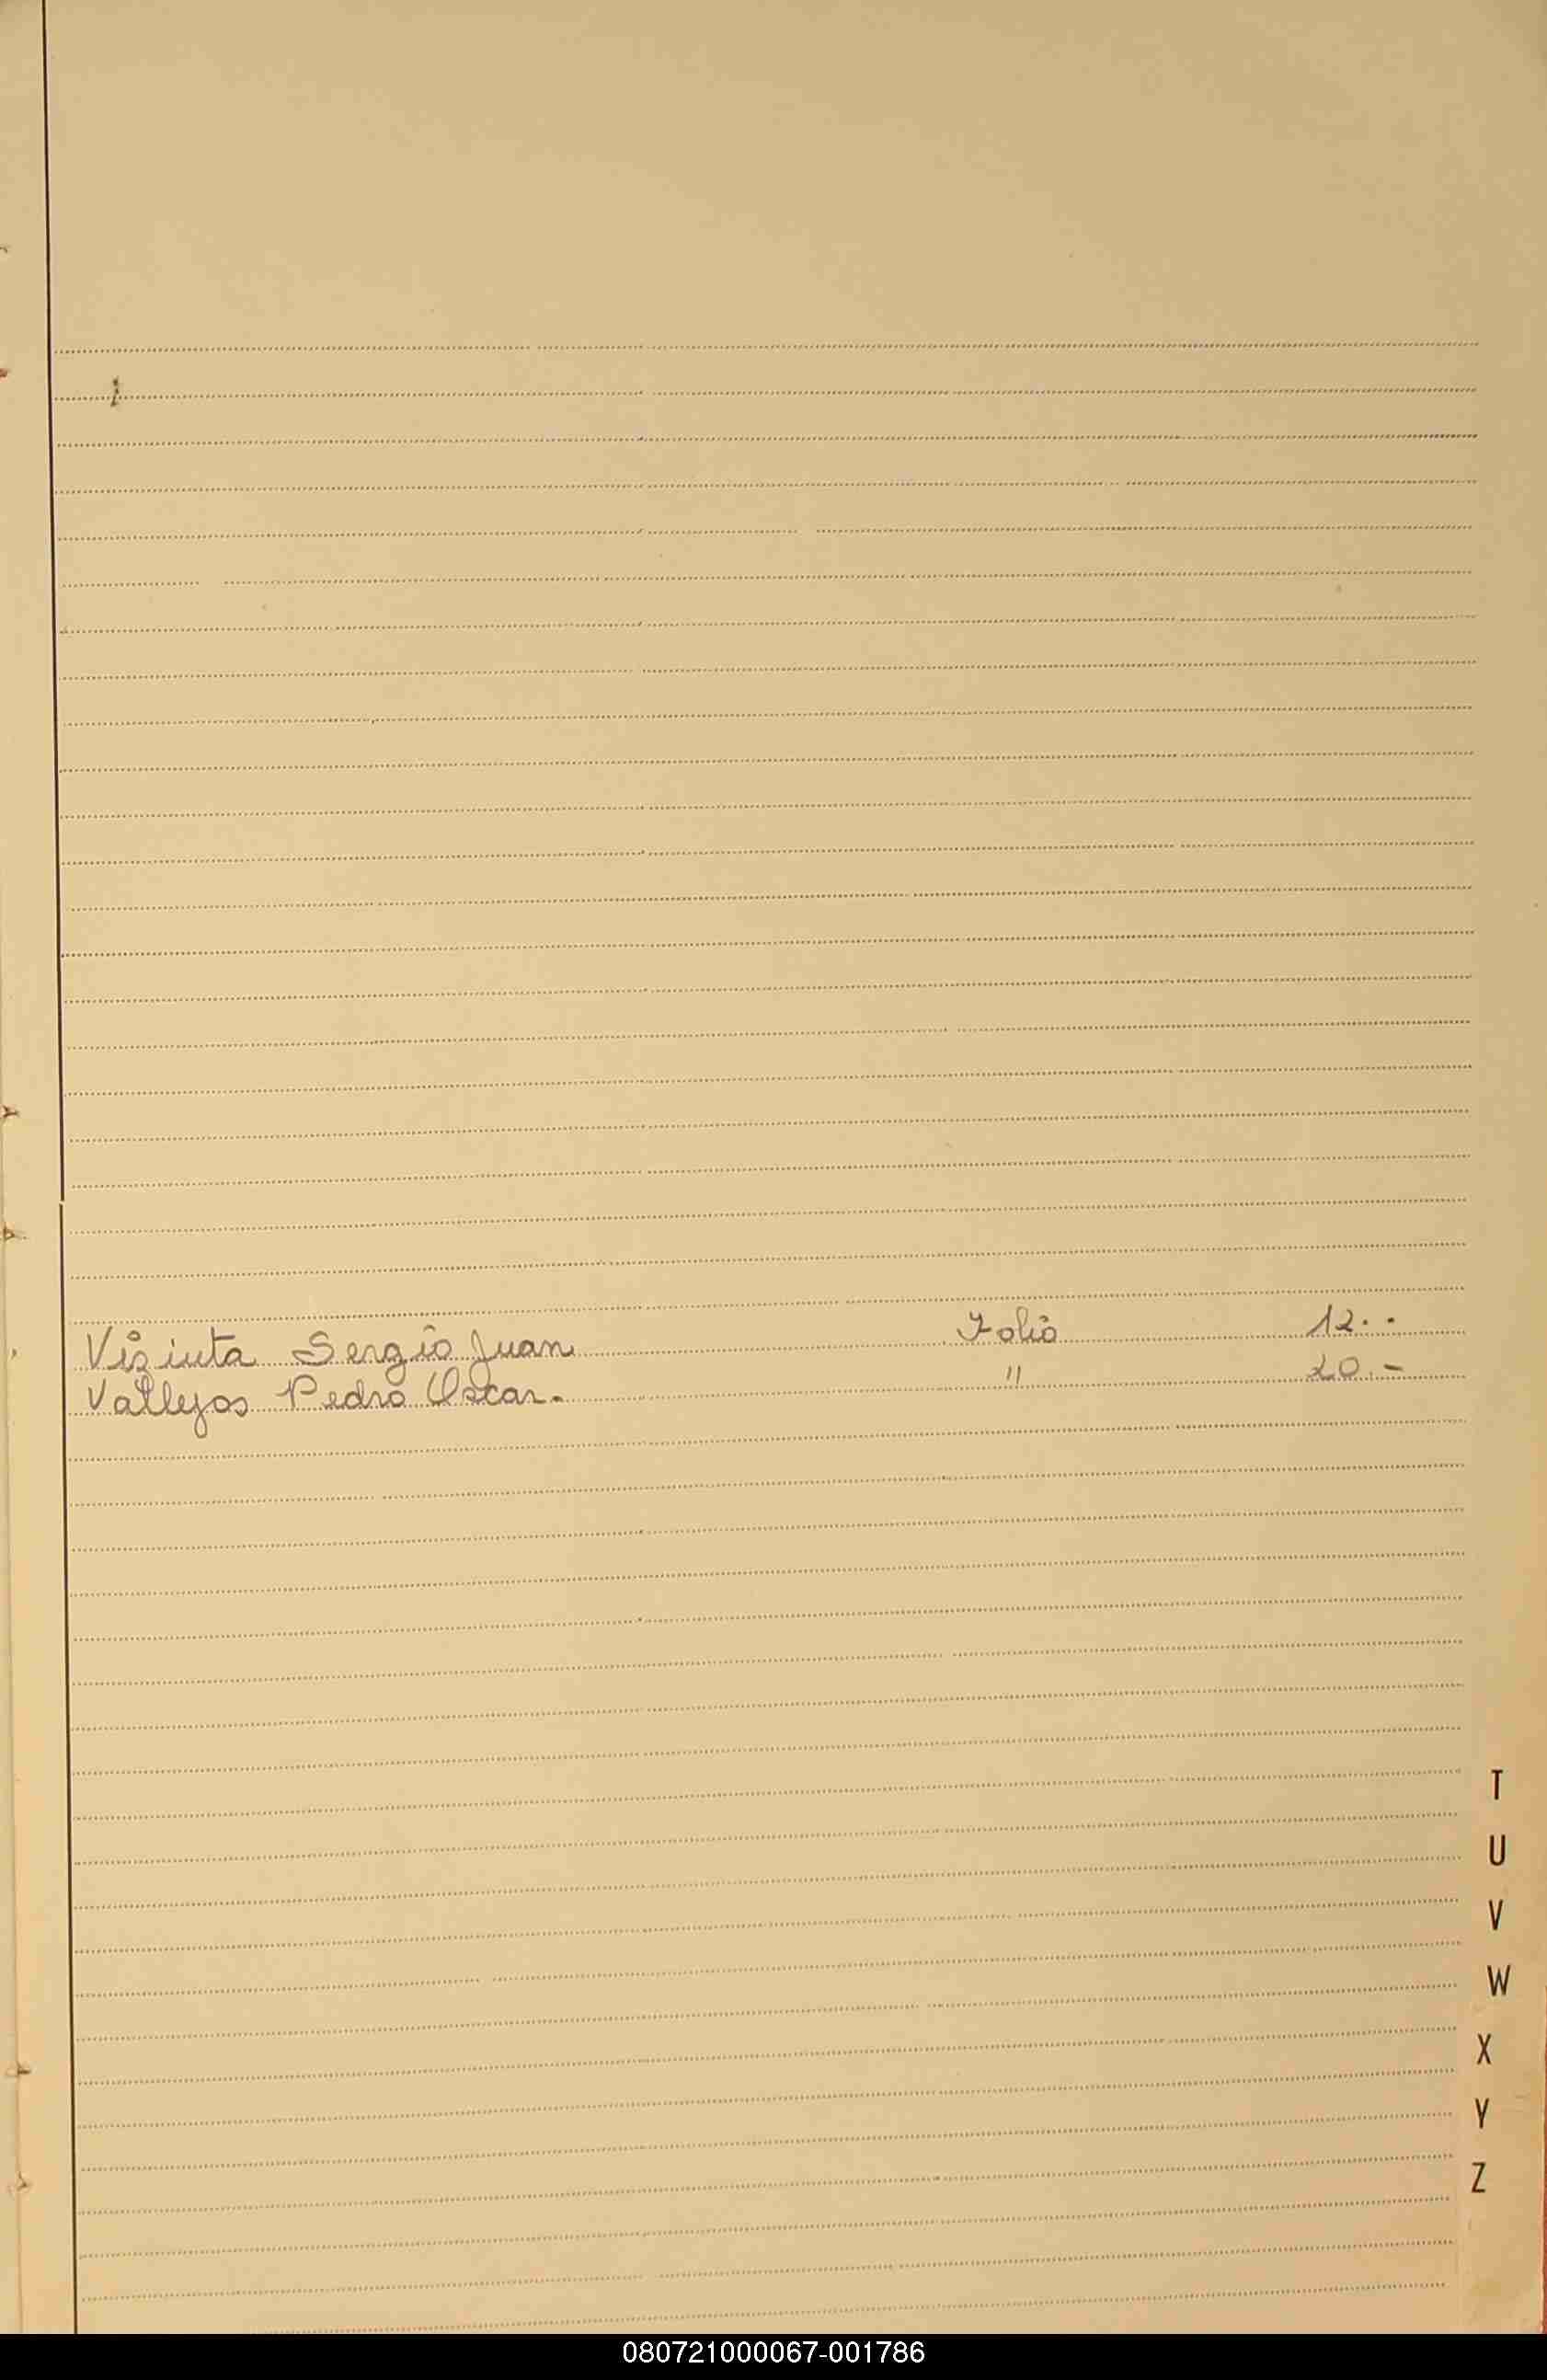 Visiuta Sergio Juan Folio 12..
Vallejos Pedro Oscar.- " 20.-
T
U
V
W
X
Y
Z
080721000067-001786